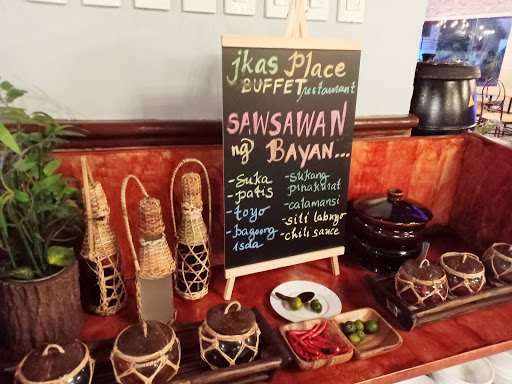 jkas Place
BUFFET restaurant
SAWSAWAN
ng BAYAN...
-Suka
patis
-toyo
-bagoong
isda
-Sukang
pinakurat
-calamansi
-sili labuyo
-chili sauce